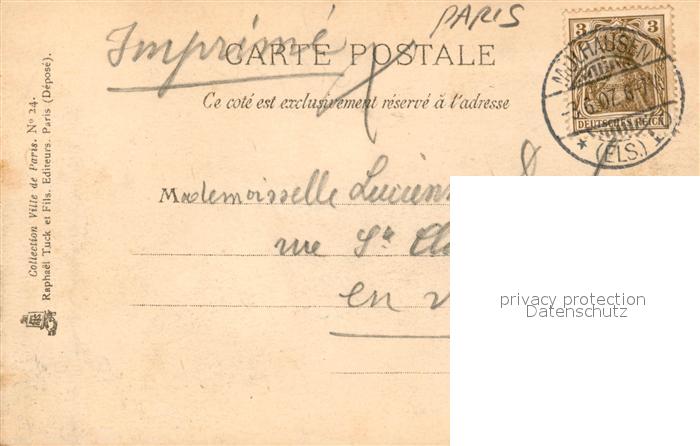 PARIS
Imprimé
CARTE POSTALE
Ce coté est exclusivement réservé à l'adresse
3 3
DEUTSCHES REICH
MÜLHAUSEN
6.07. 6-7
(ELS.)
Mademoiselle Lucienn
rue Ste Cl
en v
Collection Ville de Paris. No 24.
Raphaël Tuck et Fils. Editeurs. Paris (Déposé).
privacy protection
Datenschutz